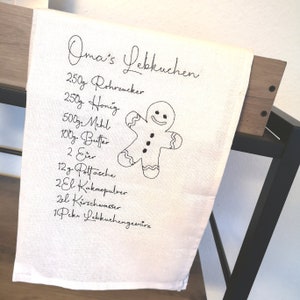 Oma's Lebkuchen
250g Rohrzucker
250g Honig
500g Mehl
100g Butter
2 Eier
12g Pottasche
2El Kakaopulver
2cl Kirschwasser
1Pckn Lebkuchengewürz